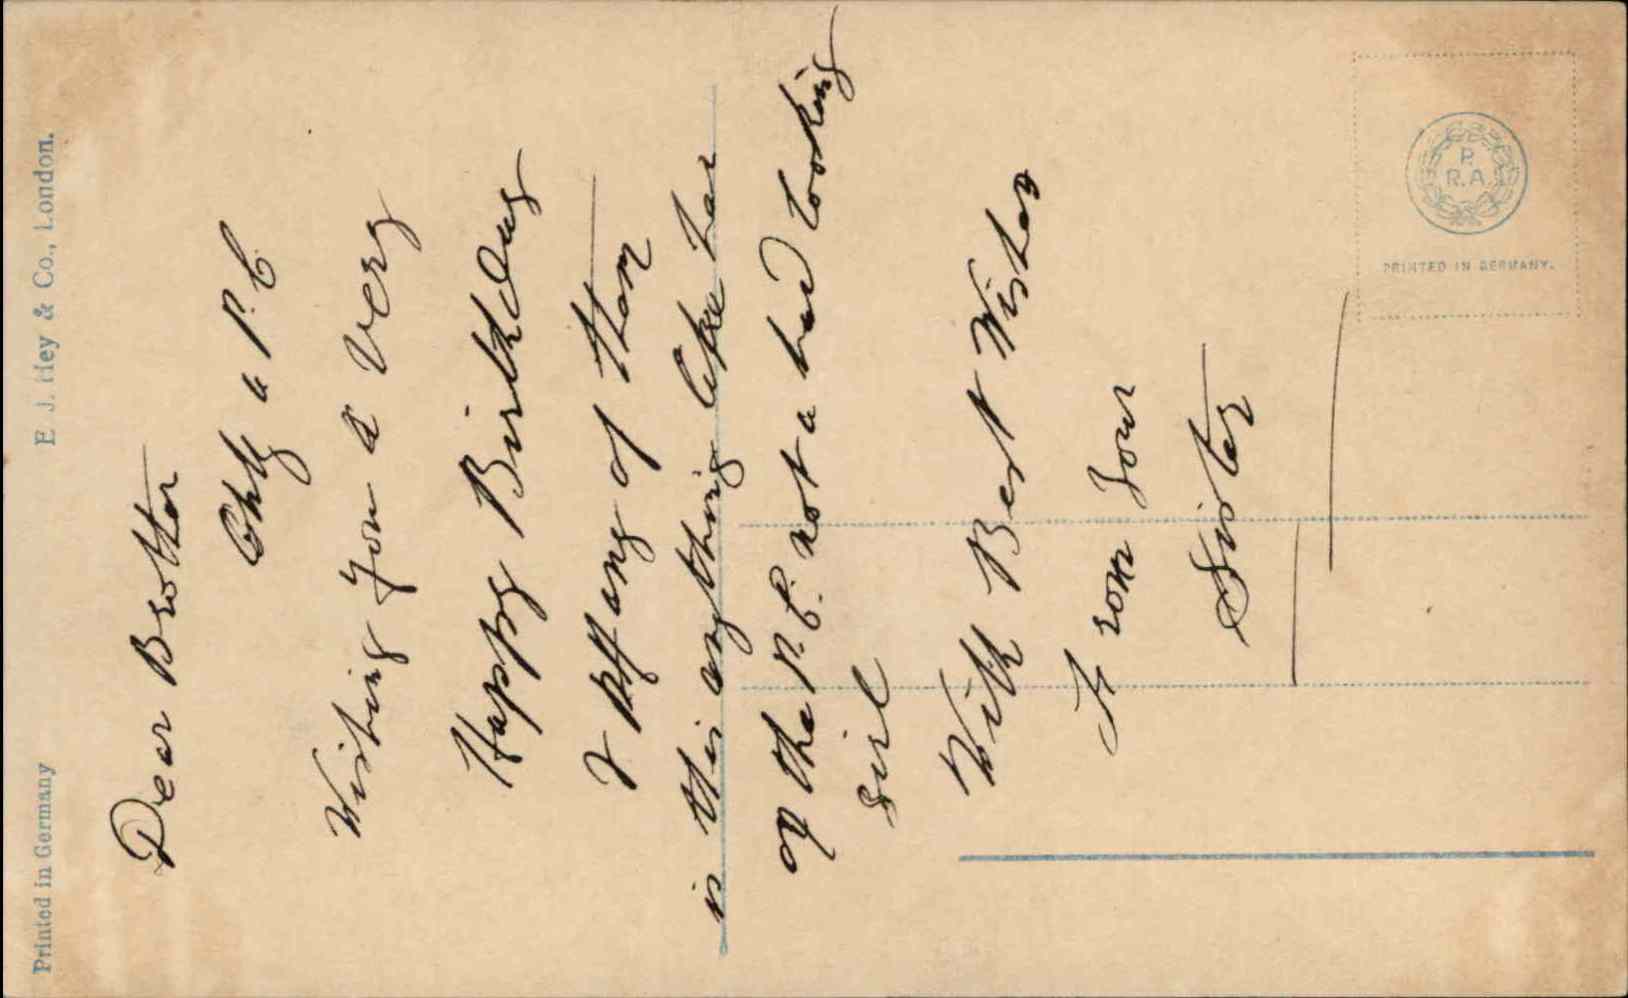 Printed in Germany
E. J. Hey & Co., London.
Dear Brother
Only a P.C
Wishing you a Very
Happy Birthday
& Many of them
is this anything like her
of the P.C. not a bad looking
girl
With Best Wishes
From Your
Sister
P.
R.A
PRINTED IN GERMANY.